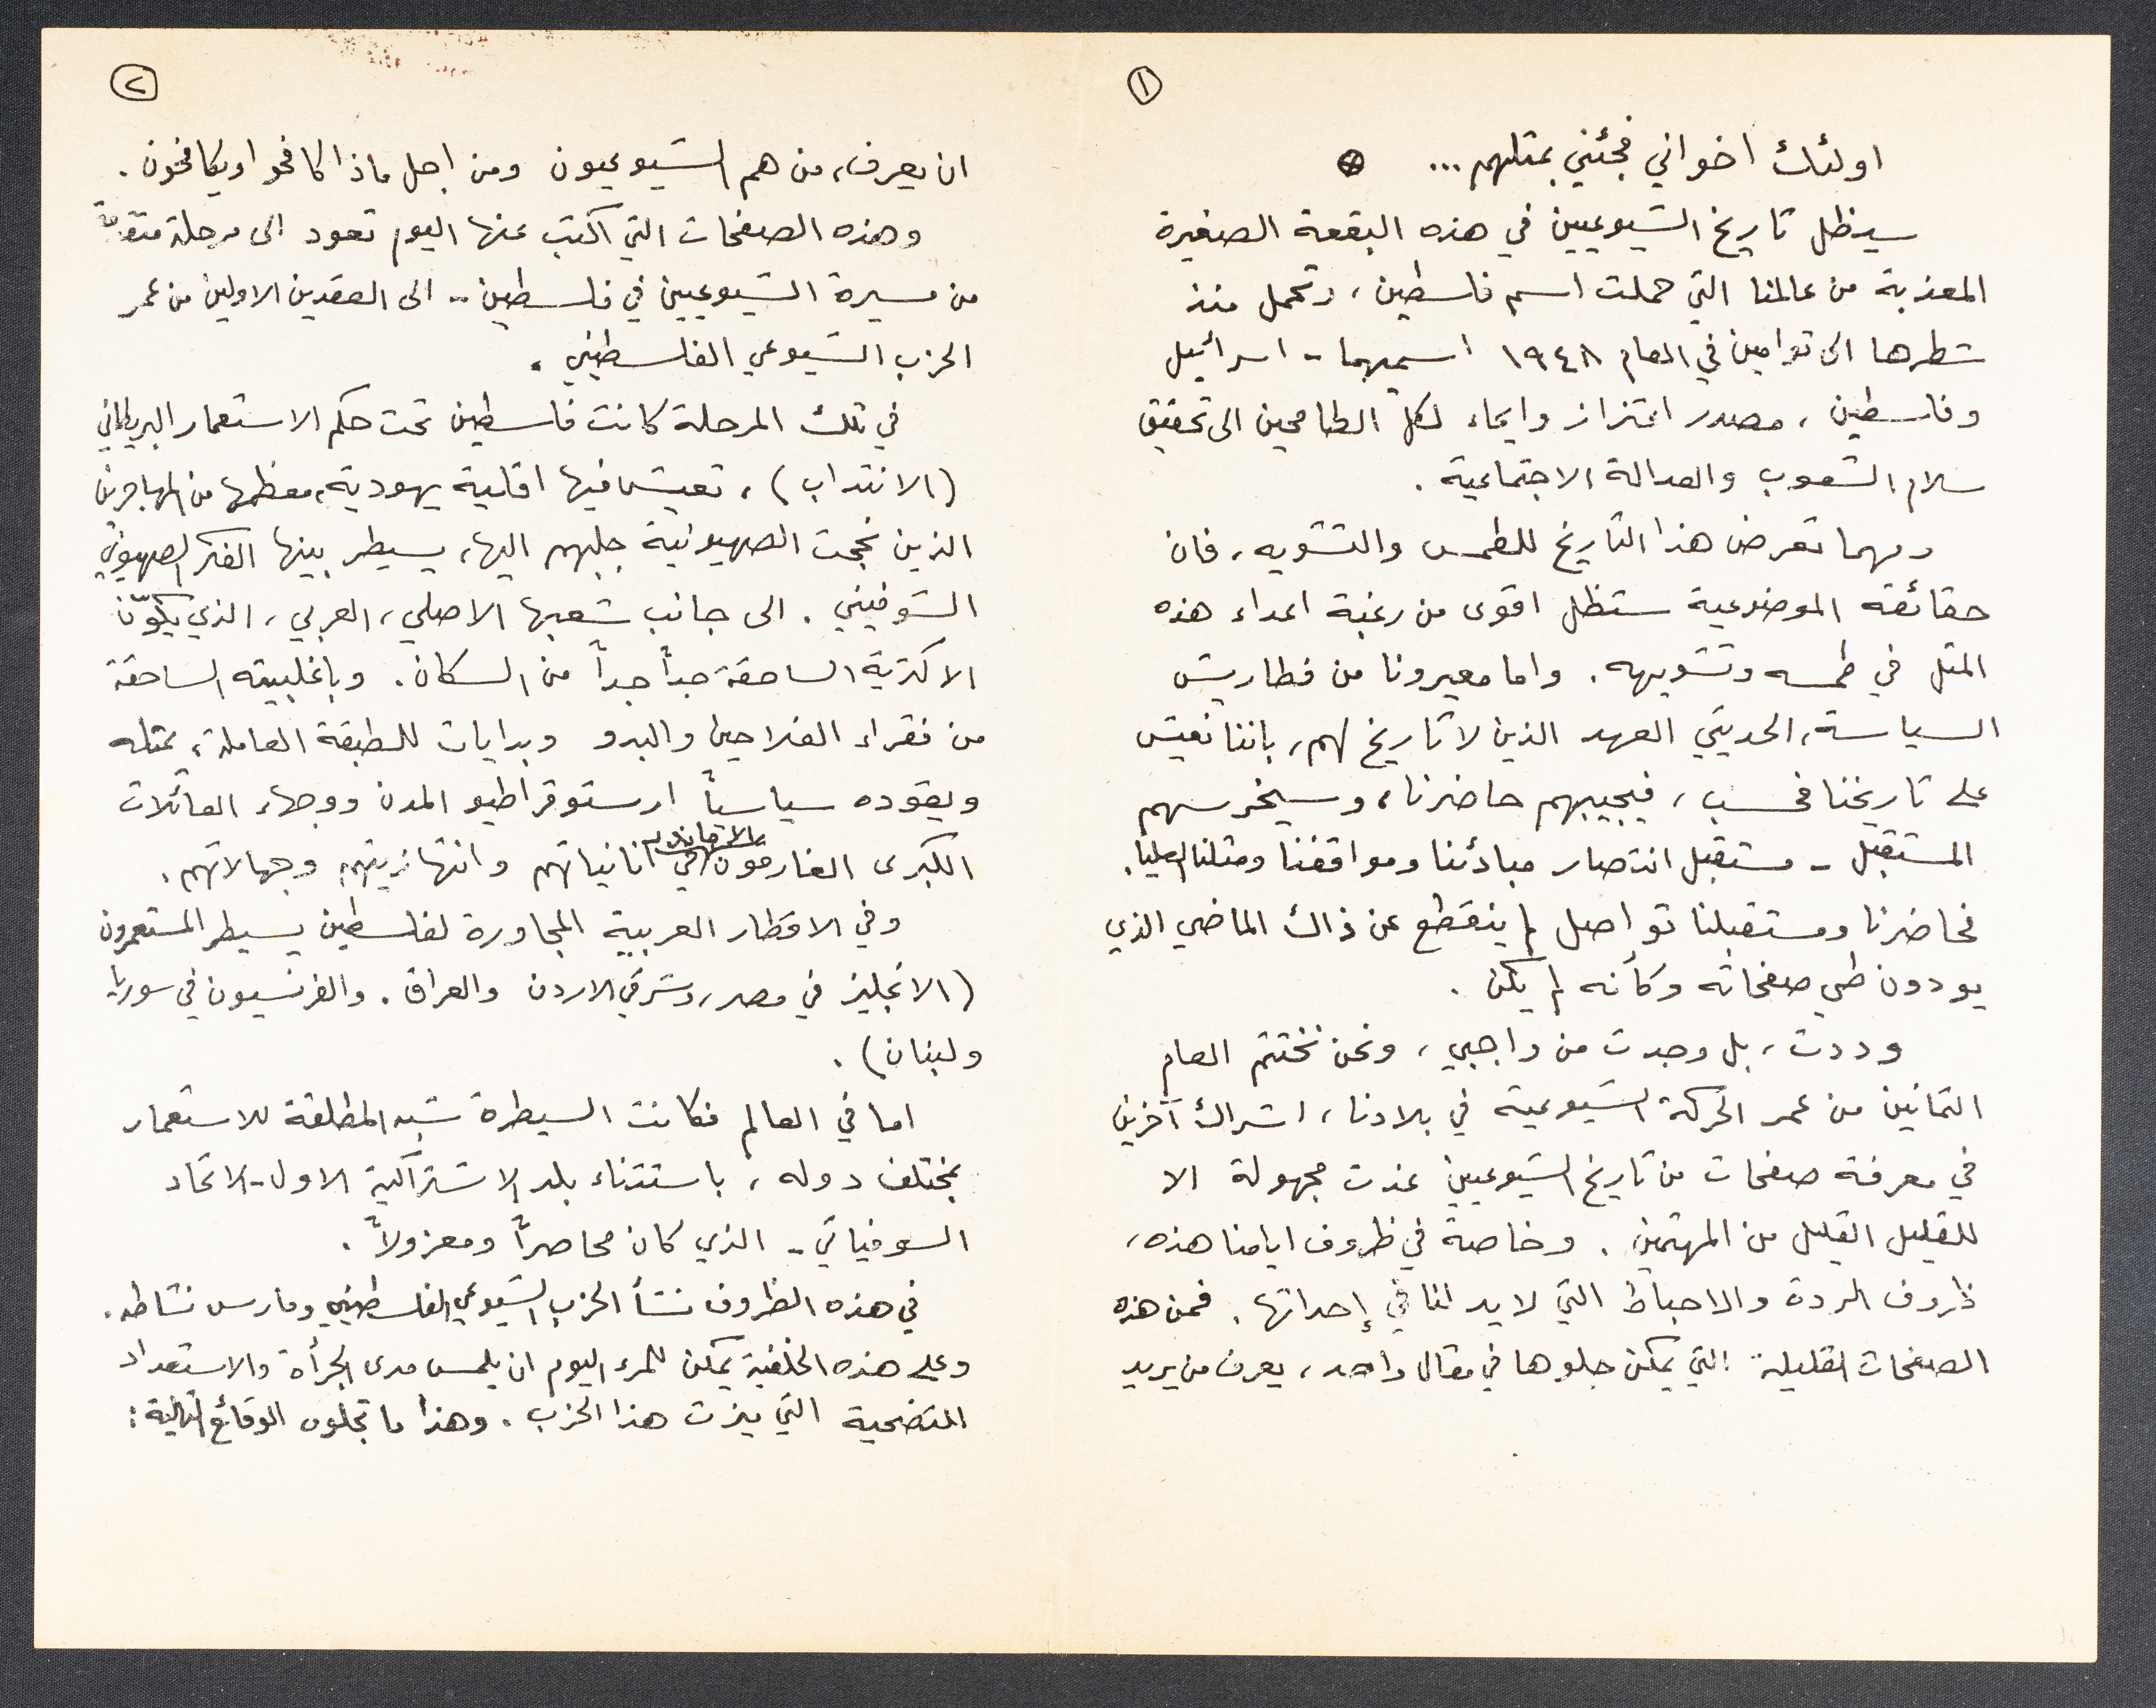 ١
اولئك اخواني فجئني بمثلهم...
سيظل تاريخ الشيوعيين في هذه البقعة الصغيرة
المعذبة من عالمنا التي حملت اسم فلسطين، وتحمل منذ
شطرها الى توامين في العام ١٩٤٨ اسميهما - اسرائيل
وفلسطين، مصدر اعتزاز وايحاء لكل الطامحين الى تحقيق
سلام الشعوب والعدالة الاجتماعية.
ومهما تعرض هذا التاريخ للطمس والتشويه، فان
حقائقه الموضوعية ستظل اقوى من رغبة اعداء هذه
المثل في طمسه وتشويهه. واما معيرونا من فطاريش
السياسة، الحديثي العهد الذين لا تاريخ لهم، باننا نعيش
على تاريخنا فحسب، فيجيبهم حاضرنا، وسيخرسهم
المستقبل - مستقبل انتصار مبادئنا ومواقفنا ومثلنا العليا.
فحاضرنا ومستقبلنا تواصل لم ينقطع عن ذاك الماضي الذي
يودون طي صفحاته وكأنه لم يكن.
وددت، بل وجدت من واجبي، ونحن نختتم العام
الثمانين من عمر الحركة الشيوعية في بلادنا، اشراك آخرين
في معرفة صفحات من تاريخ الشيوعيين غدت مجهولة الا
للقليل القليل من المهتمين. وخاصة في ظروف ايامنا هذه،
ظروف الردة والاحباط التي لا يد لنا في إحداثها. فمن هذه
الصفحات القليلة التي يمكن جلوها في مقال واحد، يعرف من يريد
٢
ان يعرف، من هم الشيوعيون ومن اجل ماذا كافحوا ويكافحون.
وهذه الصفحات التي اكتب عنها اليوم تعود الى مرحلة
من مسيرة الشيوعيين في فلسطين - الى العقدين الاولين من عمر
الحزب الشيوعي الفلسطيني.
في تلك المرحلة كانت فلسطين تحت حكم الاستعمار البريطاني
(الانتداب)، تعيش فيها اقلية يهودية، معظمها من المهاجرين
الذين نجحت الصهيونية جلبهم اليها، يسيطر بينها الفكر الصهيوني
الشوفيني. الى جانب شعبها الاصلي، العربي، الذي يكوّن
الاكثرية الساحقة جداً جداً من السكان. وباغلبيته الساحقة
من فقراء الفلاحين والبدو وبدايات للطبقة العاملة، يمثله
ويقوده سياسياً ارستوقراطيو المدن ووجهاء العائلات
الكبرى الغارقون في انانياتهم وانتهازيتهم وجهالاتهم.
وفي الاقطار العربية المجاورة لفلسطين يسيطر المستعمرون
(الانجليز في مصر، وشرقي الاردن والعراق. والفرنسيون في سوريا
ولبنان).
اما في العالم فكانت السيطرة شبه المطلقة للاستعمار
بمختلف دوله، باستثناء بلد الاشتراكية الاول - الاتحاد
السوفياتي - الذي كان محاصراً ومعزولاً.
في هذه الظروف نشأ الحزب الشيوعي الفلسطيني ومارس نشاطه.
وعلى هذه الخلفية يمكن للمرء اليوم ان يلمس مدى الجرأة والاستعداد
للتضحية التي ميزت هذا الحزب. وهذا ما تجلوه الوقائع التالية: